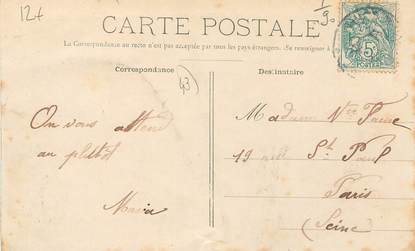 12+
1/90
CARTE POSTALE
La Correspondance au recto n'est pas acceptée par tous les pays étrangers. (Se renseigner à
Correspondance
Destinataire
43
5
POSTES
On vous attend
au plutôt
Maria
Madame Vve Faure
19 rue St Paul
Paris
(Seine)